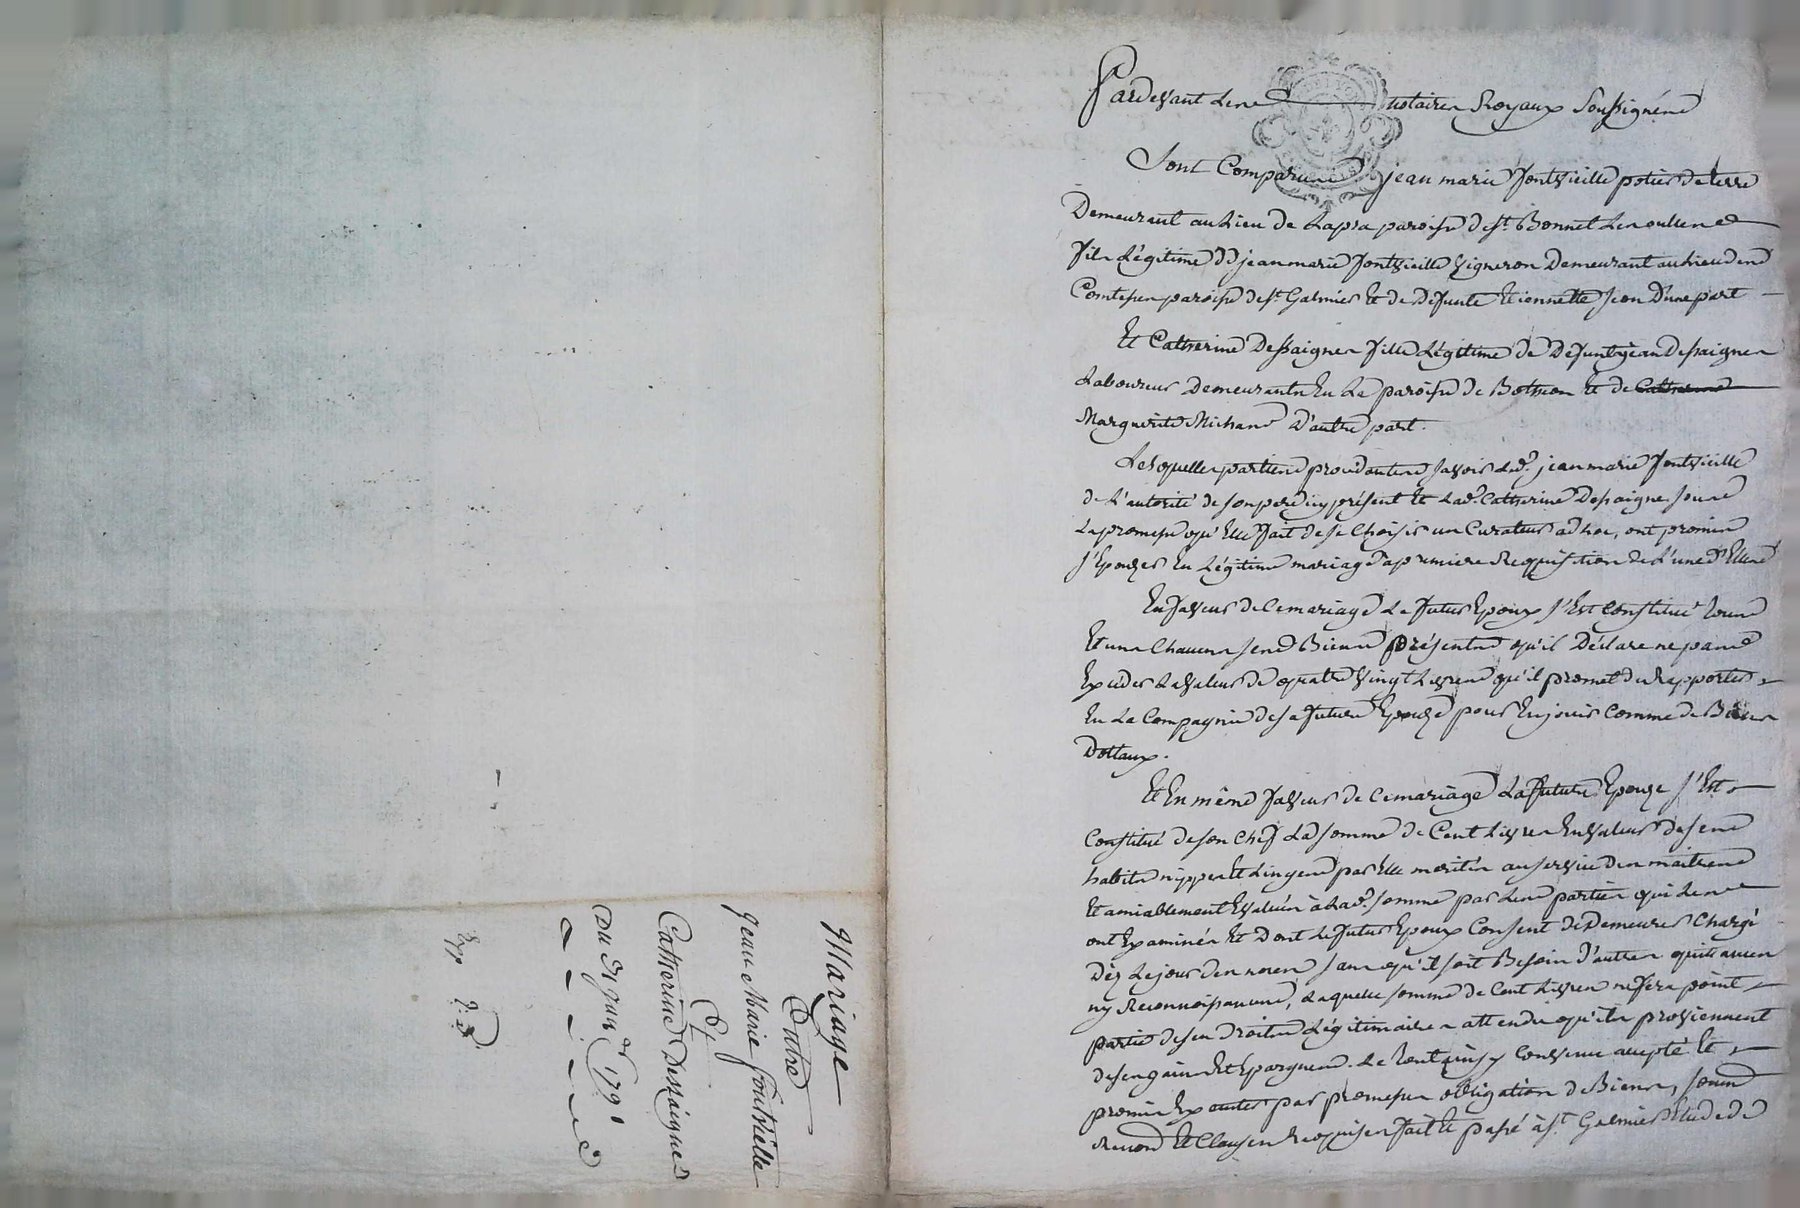 Mariage
Entre
Jean Marie fontvielle
Et
Catherine Dessaignes
Du 31 janer 1791
Exp
Pardevant Les notaires Royaux Soussignés
Sont Comparus jean marie fontvieille potier de terre
Demeurant au Lieu de Lapra paroisse de st Bonnet Les oulles
fils Légitime de jean marie fontvieille vigneron Demeurant au Lieu des
Comtes paroisse de st Galmier Et de Defunte Etiennette Jeon D'une part
Et Catherine Dessaignes fille Légitime de Defunt jean dessaignes
Laboureur Demeurants En La paroisse de Bothéon Et de Catherine
Marguerite Michand D'autre part.
Lesquelles parties procedantes savoir Led. jean marie fontvieille
de L'autorité de son pere icy présent Et Lad. Catherine Dessaigne sous
La promesse qu'Elle fait de se Choisir un Curateur ad hoc, ont promis
s'Epouser En Légitime mariage a premiere Requisition de L'une d'Elles
En faveur de Ce mariage Le futur Epoux s'Est Constitué tous
Et uns Chacuns ses Biens présents qu'il Déclare ne pas
Exceder La valeur de quatre vingt Livres qu'il promet de Rapporter
En La Compagnie de sa future Epouse pour En jouir Comme de Biens
Dottaux.
Et En même faveur de Ce mariage La future Epouze s'Est
Constitué de son Chef La somme de Cent Livres En valeur de ses
habits nippes Et Linges par Elle mérités au service des maitres
Et amiablement Evalués à Lad. somme par Les parties qui Les
ont Examinés Et Dont Le futur Epoux Consent de Demeurer Chargé
Dès Le jour des noces sans qu'il soit Besoin d'autres quittances
ny Reconnoissances, Laquelle somme de Cent Livres ne sera point
partie de ses droits Légitimaires attendu qu'ils proviennent
de ses gains Et Epargnes. Le tout ainsy Convenu accepté Et
promis Executer par promesses obligation de Biens, sous
Renon Et Clauses Requises fait Et passé à st Galmier Etude de